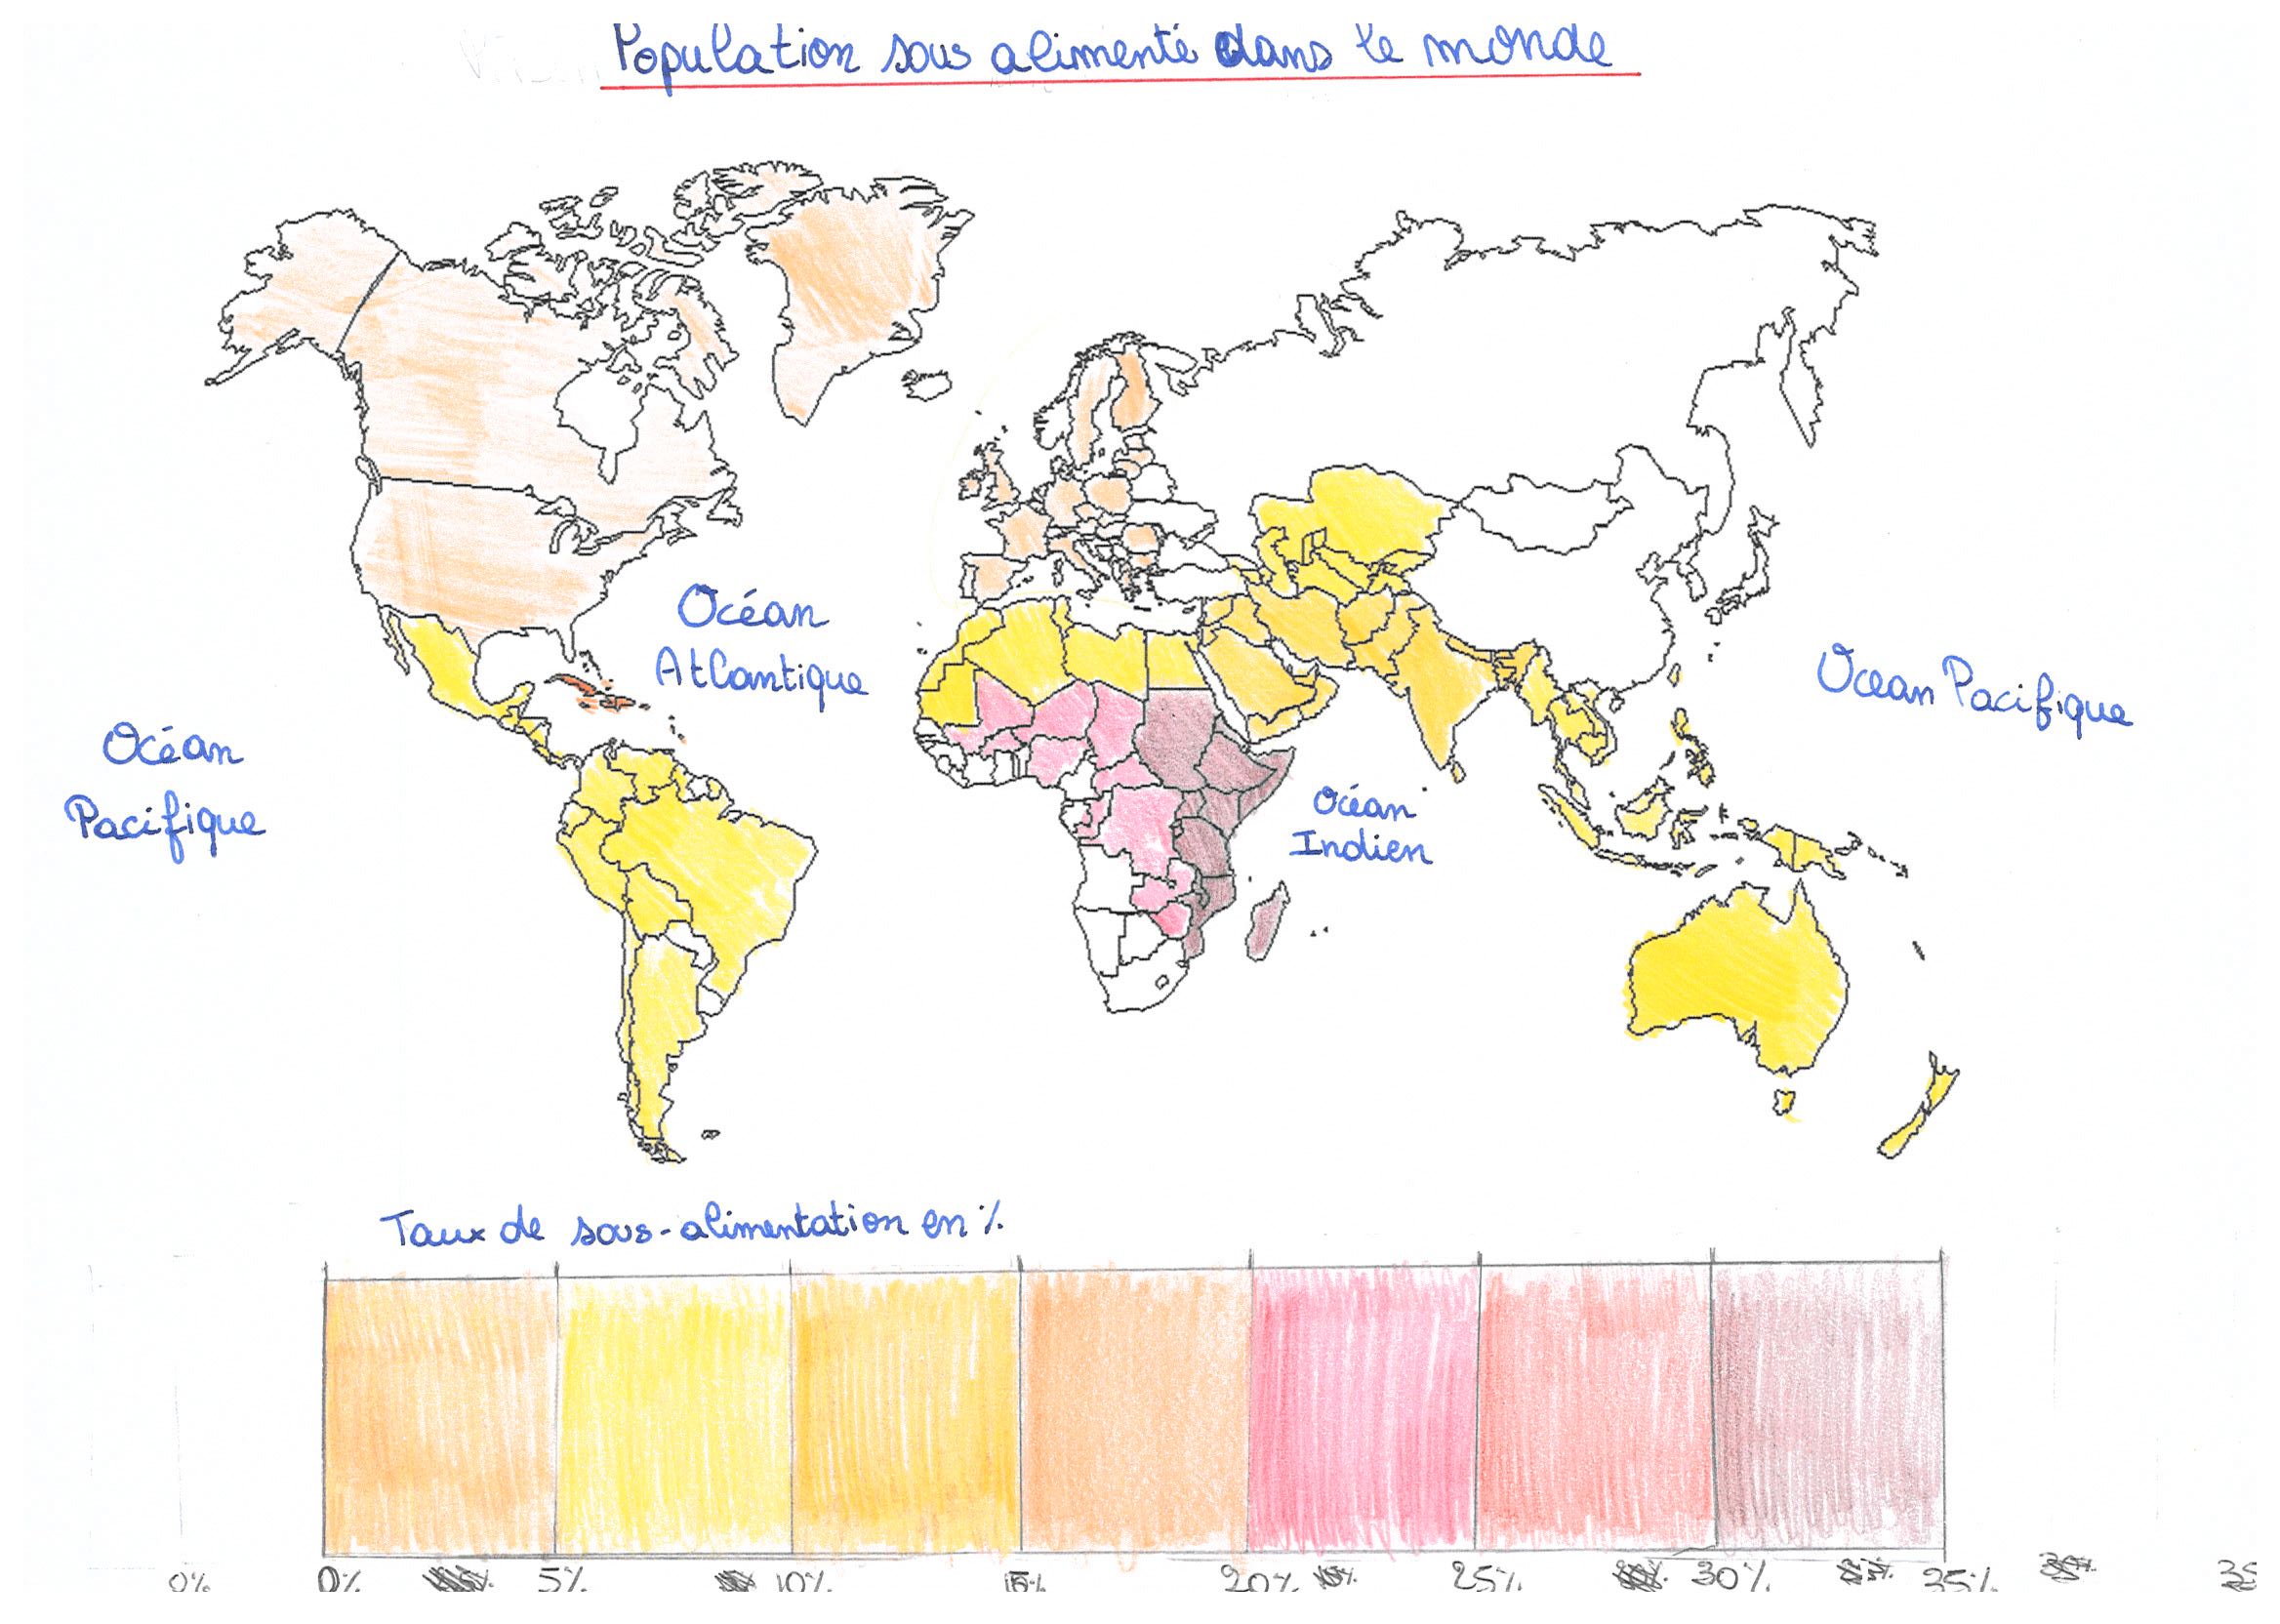 Population sous alimenté dans le monde
Océan
Atlantique
Océan Pacifique
Océan
Pacifique
Océan
Indien
Taux de sous-alimentation en %
0% 0% 5% 10% 15% 20% 25% 30% 35%